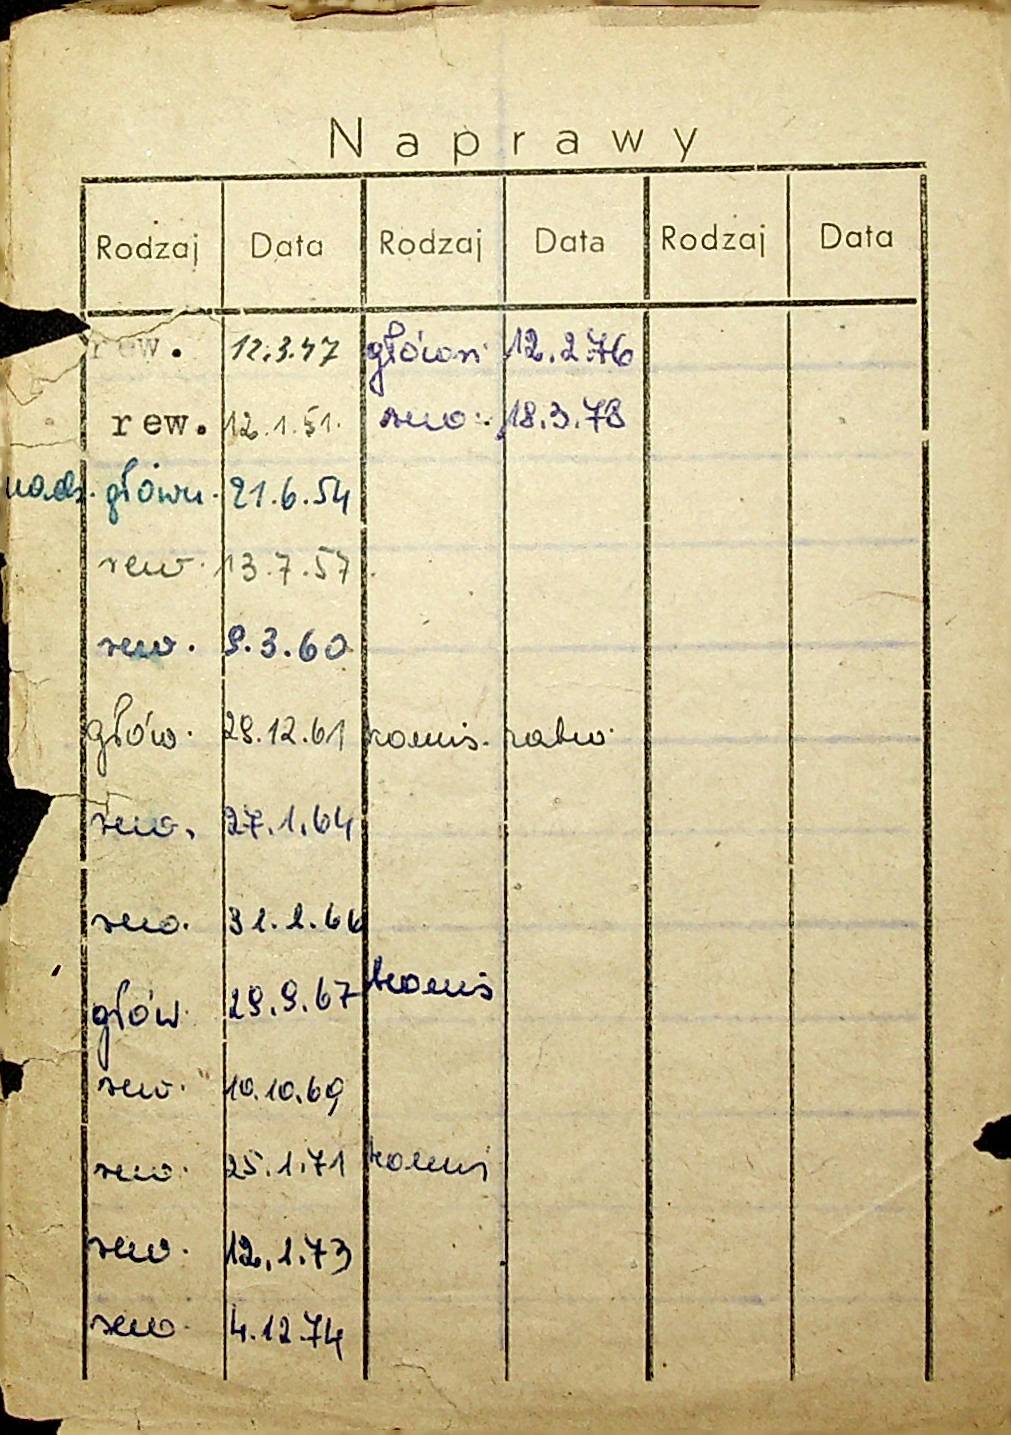 Naprawy
Rodzaj Data Rodzaj Data Rodzaj Data
rew. 12.3.47 główn. 12.2.76
rew. 12.1.51. rew. 18.3.78
nadz. główn. 21.6.54
rew. 13.7.57.
rew. 9.3.60
głów. 28.12.61
rew. 27.1.64
rew. 31.1.66
głów. 29.9.67
rew. 10.10.69
rew. 25.1.71
rew. 12.1.73
rew. 4.12.74